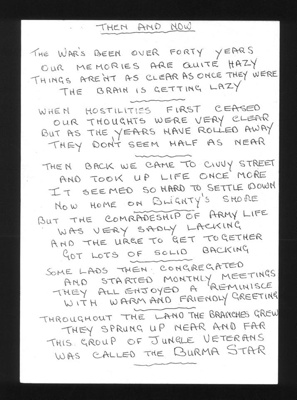 THEN AND NOW
THE WAR'S BEEN OVER FORTY YEARS
OUR MEMORIES ARE QUITE HAZY
THINGS ARE'NT AS CLEAR AS ONCE THEY WERE
THE BRAIN IS GETTING LAZY
WHEN HOSTILITIES FIRST CEASED
OUR THOUGHTS WERE VERY CLEAR
BUT AS THE YEARS HAVE ROLLED AWAY
THEY DON'T SEEM HALF AS NEAR
THEN BACK WE CAME TO CIVVY STREET
AND TOOK UP LIFE ONCE MORE
IT SEEMED SO HARD TO SETTLE DOWN
NOW HOME ON BLIGHTY'S SHORE
BUT THE COMRADESHIP OF ARMY LIFE
WAS VERY SADLY LACKING
AND THE URGE TO GET TOGETHER
GOT LOTS OF SOLID BACKING
SOME LADS THEN CONGREGATED
AND STARTED MONTHLY MEETINGS
THEY ALL ENJOYED A REMINISCE
WITH WARM AND FRIENDLY GREETING
THROUGHOUT THE LAND THE BRANCHES GREW
THEY SPRUNG UP NEAR AND FAR
THIS GROUP OF JUNGLE VETERANS
WAS CALLED THE BURMA STAR